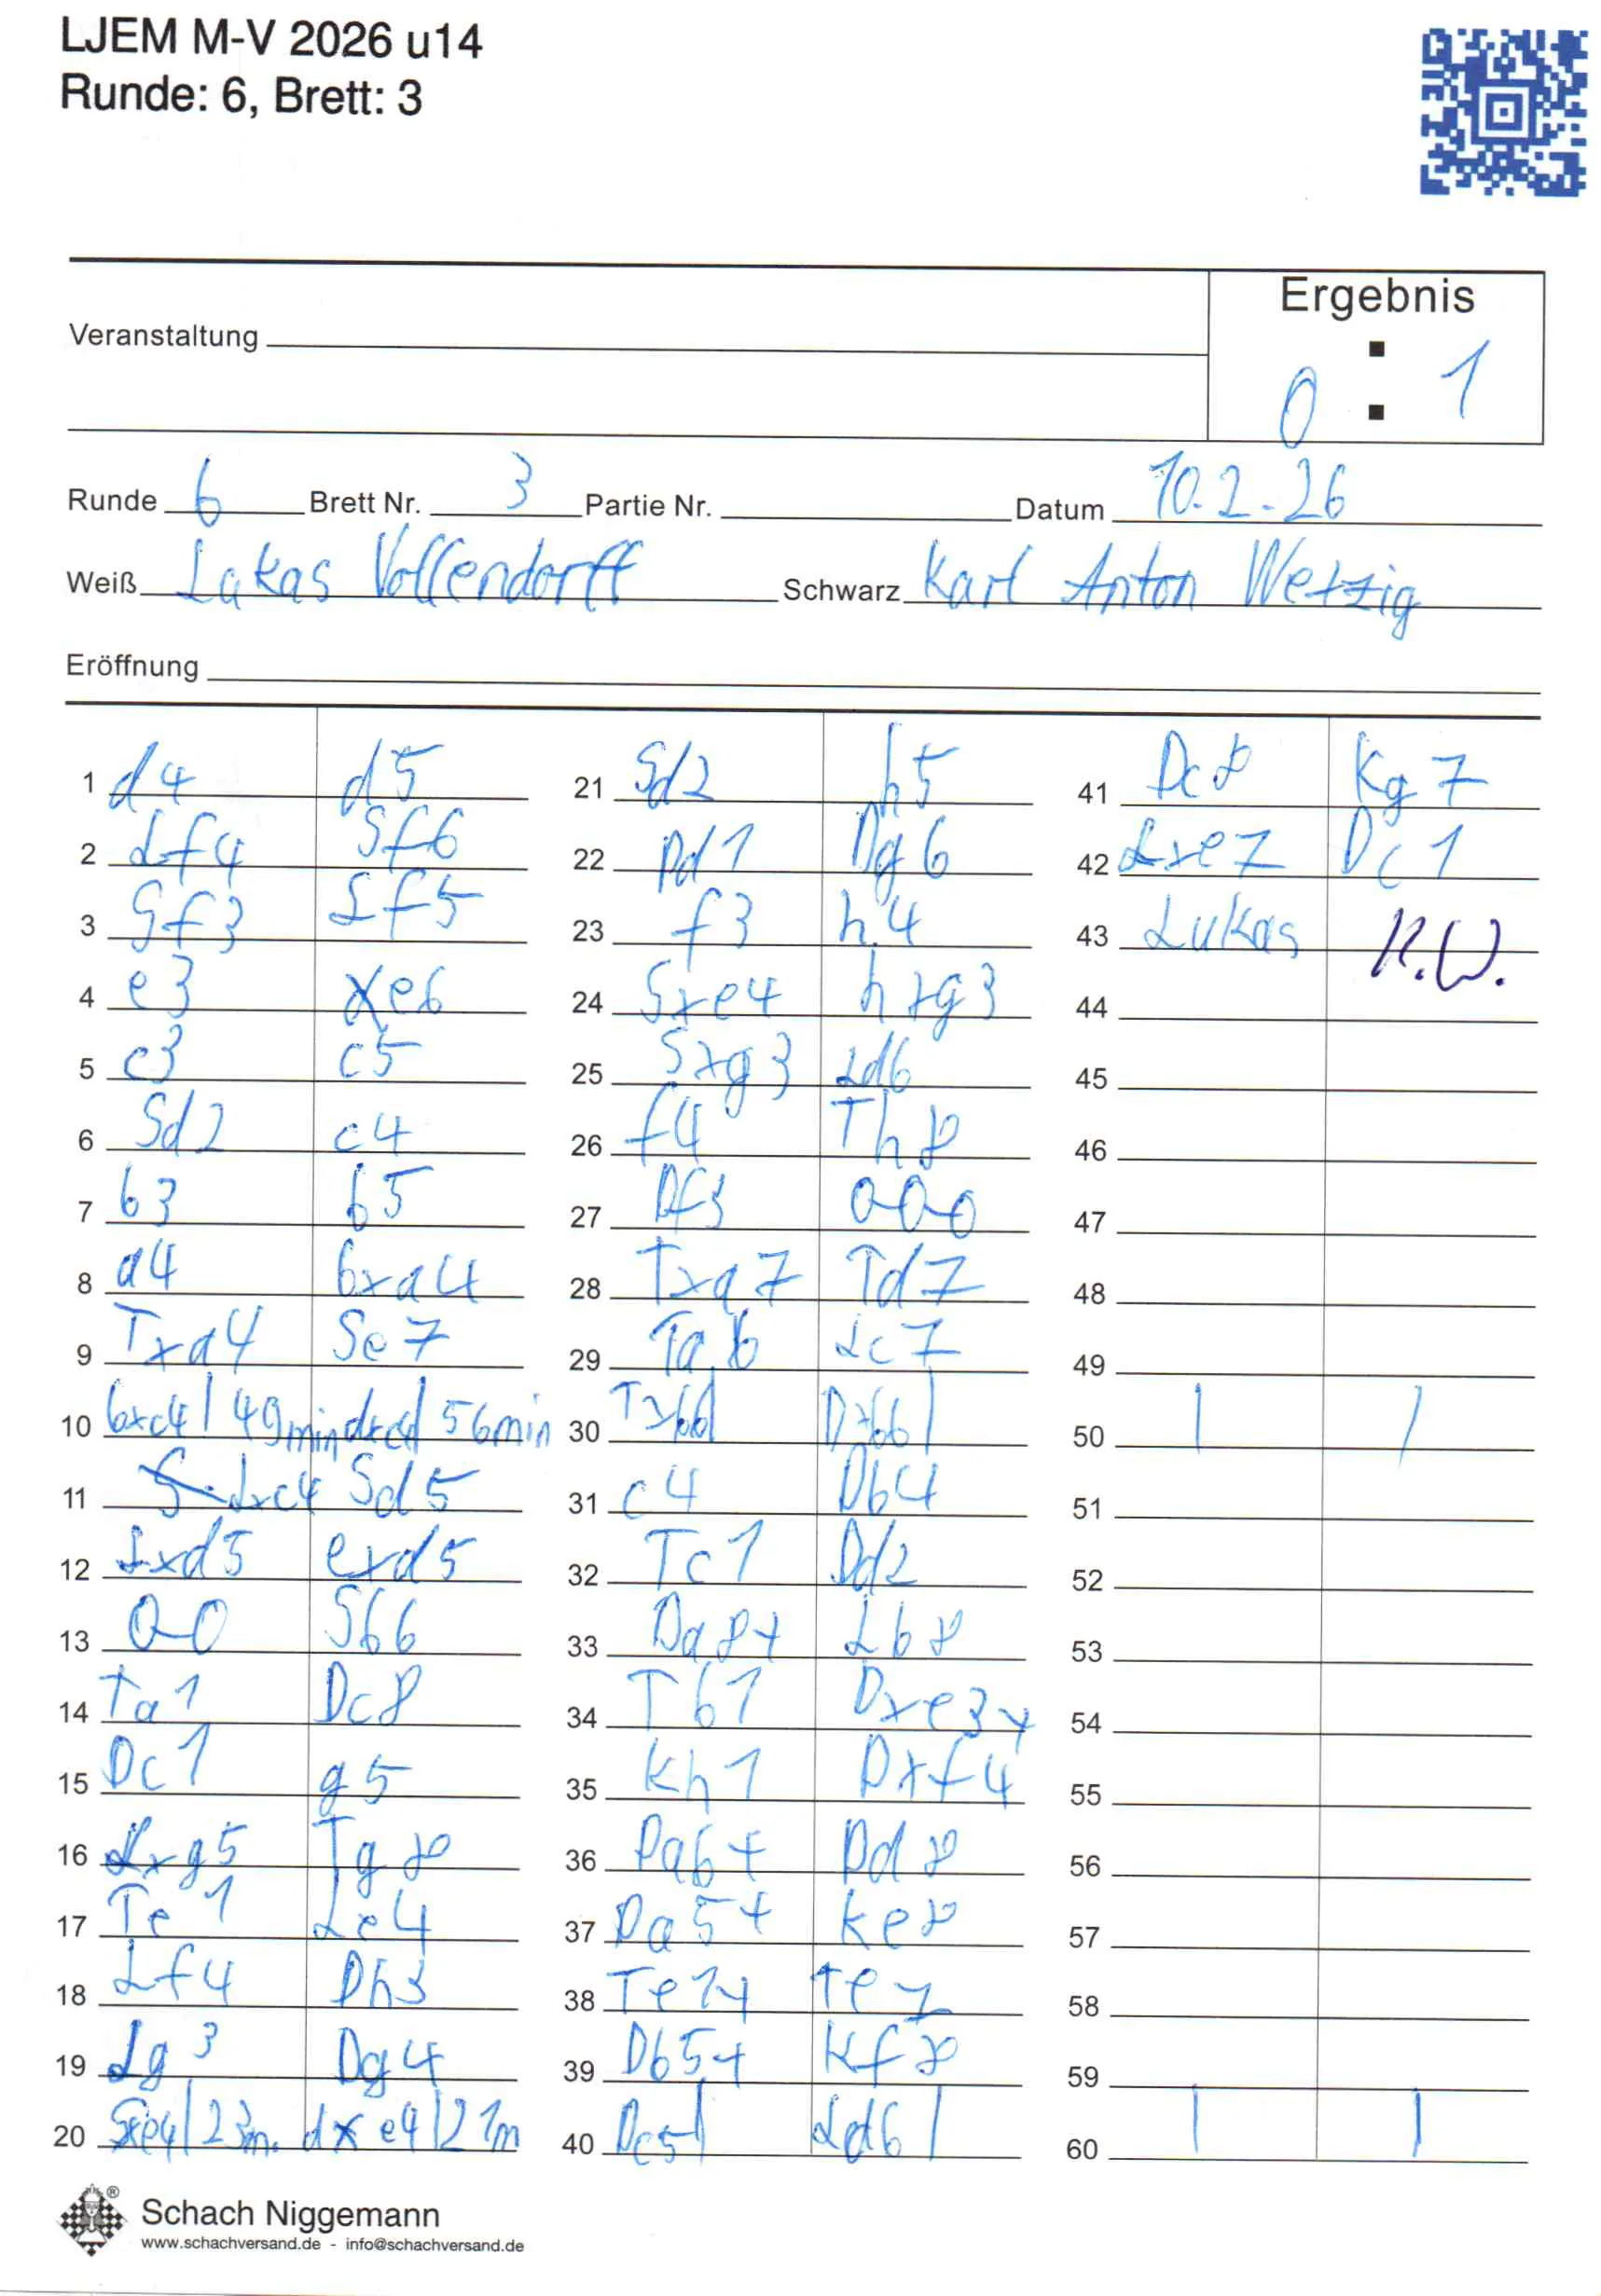 LJEM M-V 2026 u14
Runde: 6, Brett: 3
Ergebnis
Veranstaltung
0 : 1
Runde 6 Brett Nr. 3 Partie Nr. Datum 10.2.26
Weiß Lukas Vollendorff Schwarz Karl Anton Wetzig
Eröffnung
1 d4 d5
2 Lf4 Sf6
3 Sf3 Lf5
4 e3 e6
5 c3 c5
6 Sd2 c4
7 b3 b5
8 a4 bxa4
9 Txa4 Se7
10 bxc4 | 49min dxc4 | 56min
11 Lxc4 Sd5
12 Lxd5 exd5
13 0-0 Sb6
14 Ta1 Dc8
15 Dc1 g5
16 Lxg5 Tg8
17 Te1 Le4
18 Lf4 Dh3
19 Lg3 Dg4
20 Sxe4 | 23m. dxe4 | 21m
21 Sd2 h5
22 Dd1 Dg6
23 f3 h4
24 Sxe4 hxg3
25 Sxg3 Ld6
26 f4 Th8
27 Df3 0-0-0
28 Txa7 Td7
29 Ta6 Lc7
30 Txb6 | Dxb6 |
31 c4 Db4
32 Tc1 Dd2
33 Da8+ Lb8
34 Tb1 Dxe3+
35 Kh1 Dxf4
36 Da6+ Dd8
37 Da5+ Ke8
38 Te1+ Te7
39 Db5+ Kf8
40 Dc5 | Ld6 |
41 Dc8 Kg7
42 Lxe7 Dc1
43 Lukas K.W.
44
45
46
47
48
49
50 | |
51
52
53
54
55
56
57
58
59
60 | |
Schach Niggemann
www.schachversand.de - info@schachversand.de